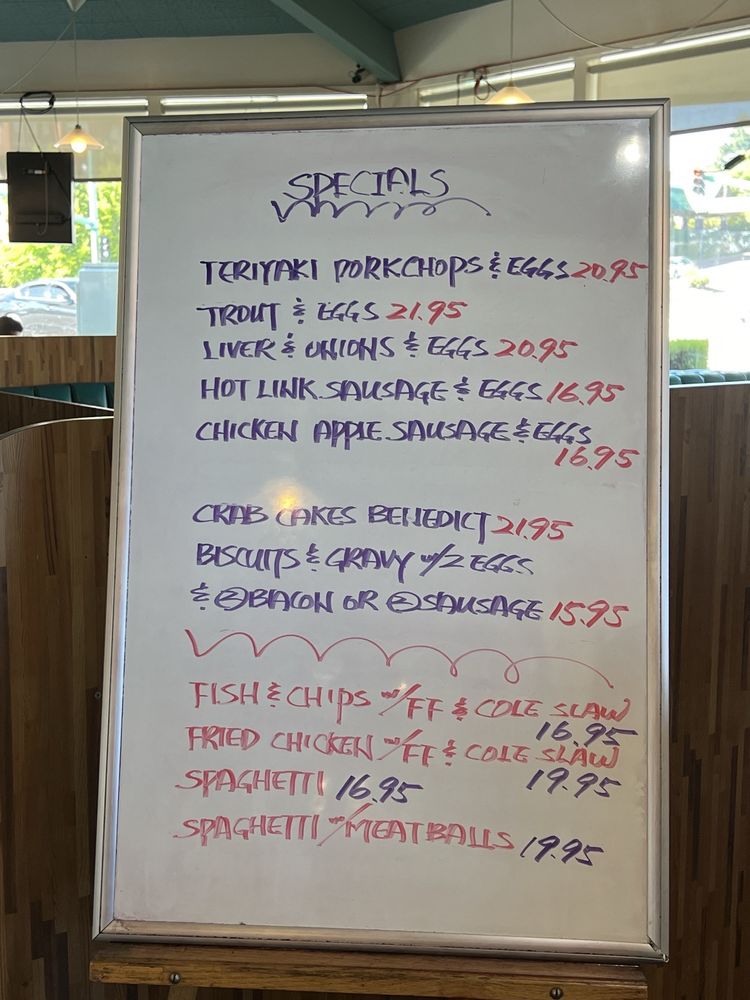 SPECIALS
TERIYAKI PORKCHOPS & EGGS 20.95
TROUT & EGGS 21.95
LIVER & ONIONS & EGGS 20.95
HOT LINK SAUSAGE & EGGS 16.95
CHICKEN APPLE SAUSAGE & EGGS
16.95
CRAB CAKES BENEDICT 21.95
BISCUITS & GRAVY w/2 EGGS
& ② BACON OR ② SAUSAGE 15.95
FISH & CHIPS w/FF & COLE SLAW
16.95
FRIED CHICKEN w/FF & COLE SLAW
19.95
SPAGHETTI 16.95
SPAGHETTI w/MEATBALLS 19.95